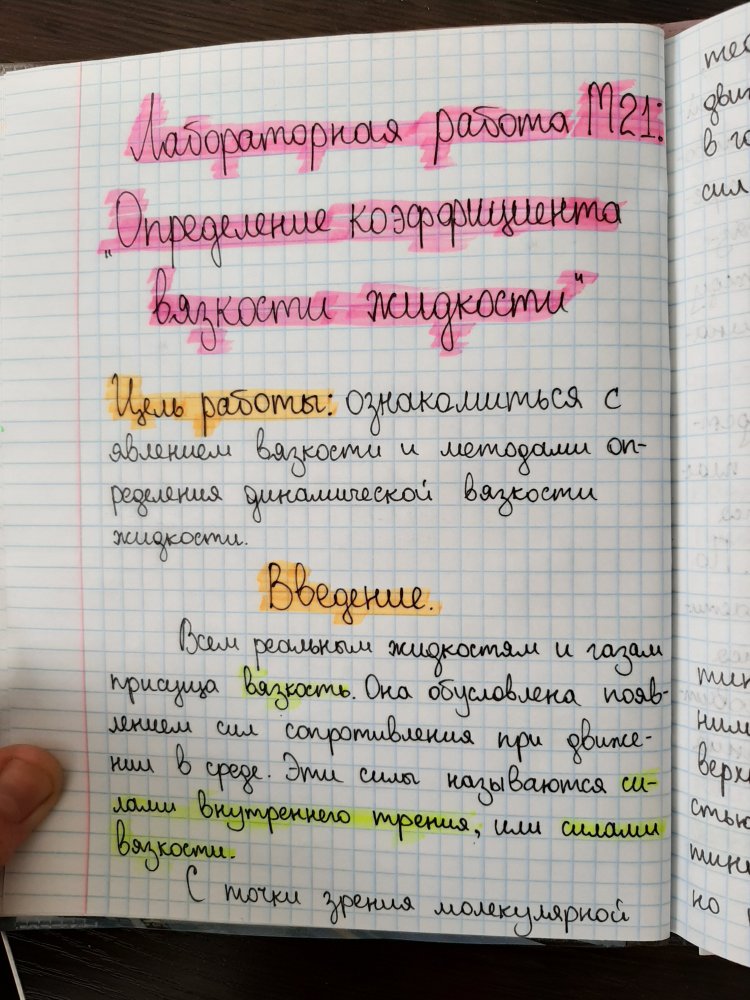 Лабораторная работа М21:
„Определение коэффициента
вязкости жидкости"
Цель работы: ознакомиться с
явлением вязкости и методами оп-
ределения динамической вязкости
жидкости.
Введение.
Всем реальным жидкостям и газам
присуща вязкость. Она обусловлена появ-
лением сил сопротивления при движе-
нии в среде. Эти силы называются си-
лами внутреннего трения, или силами
вязкости.
С точки зрения молекулярной
в го
сил
верх
стью
но